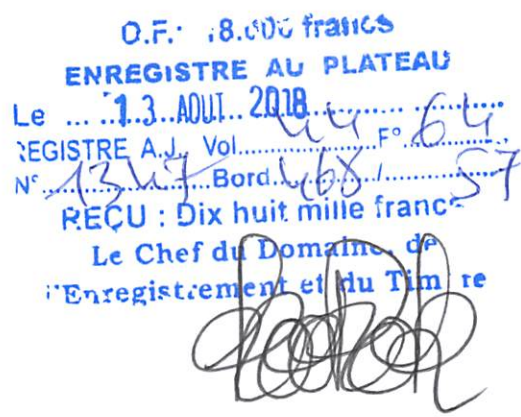 D.F.: 18.000 francs
ENREGISTRE AU PLATEAU
Le .... 13 AOUT 2018 ....................
REGISTRE A.J. Vol. 44 F° 64
N° 1347 Bord. 468 / 57
REÇU : Dix huit mille francs
Le Chef du Domaine, de
l'Enregistrement et du Timbre